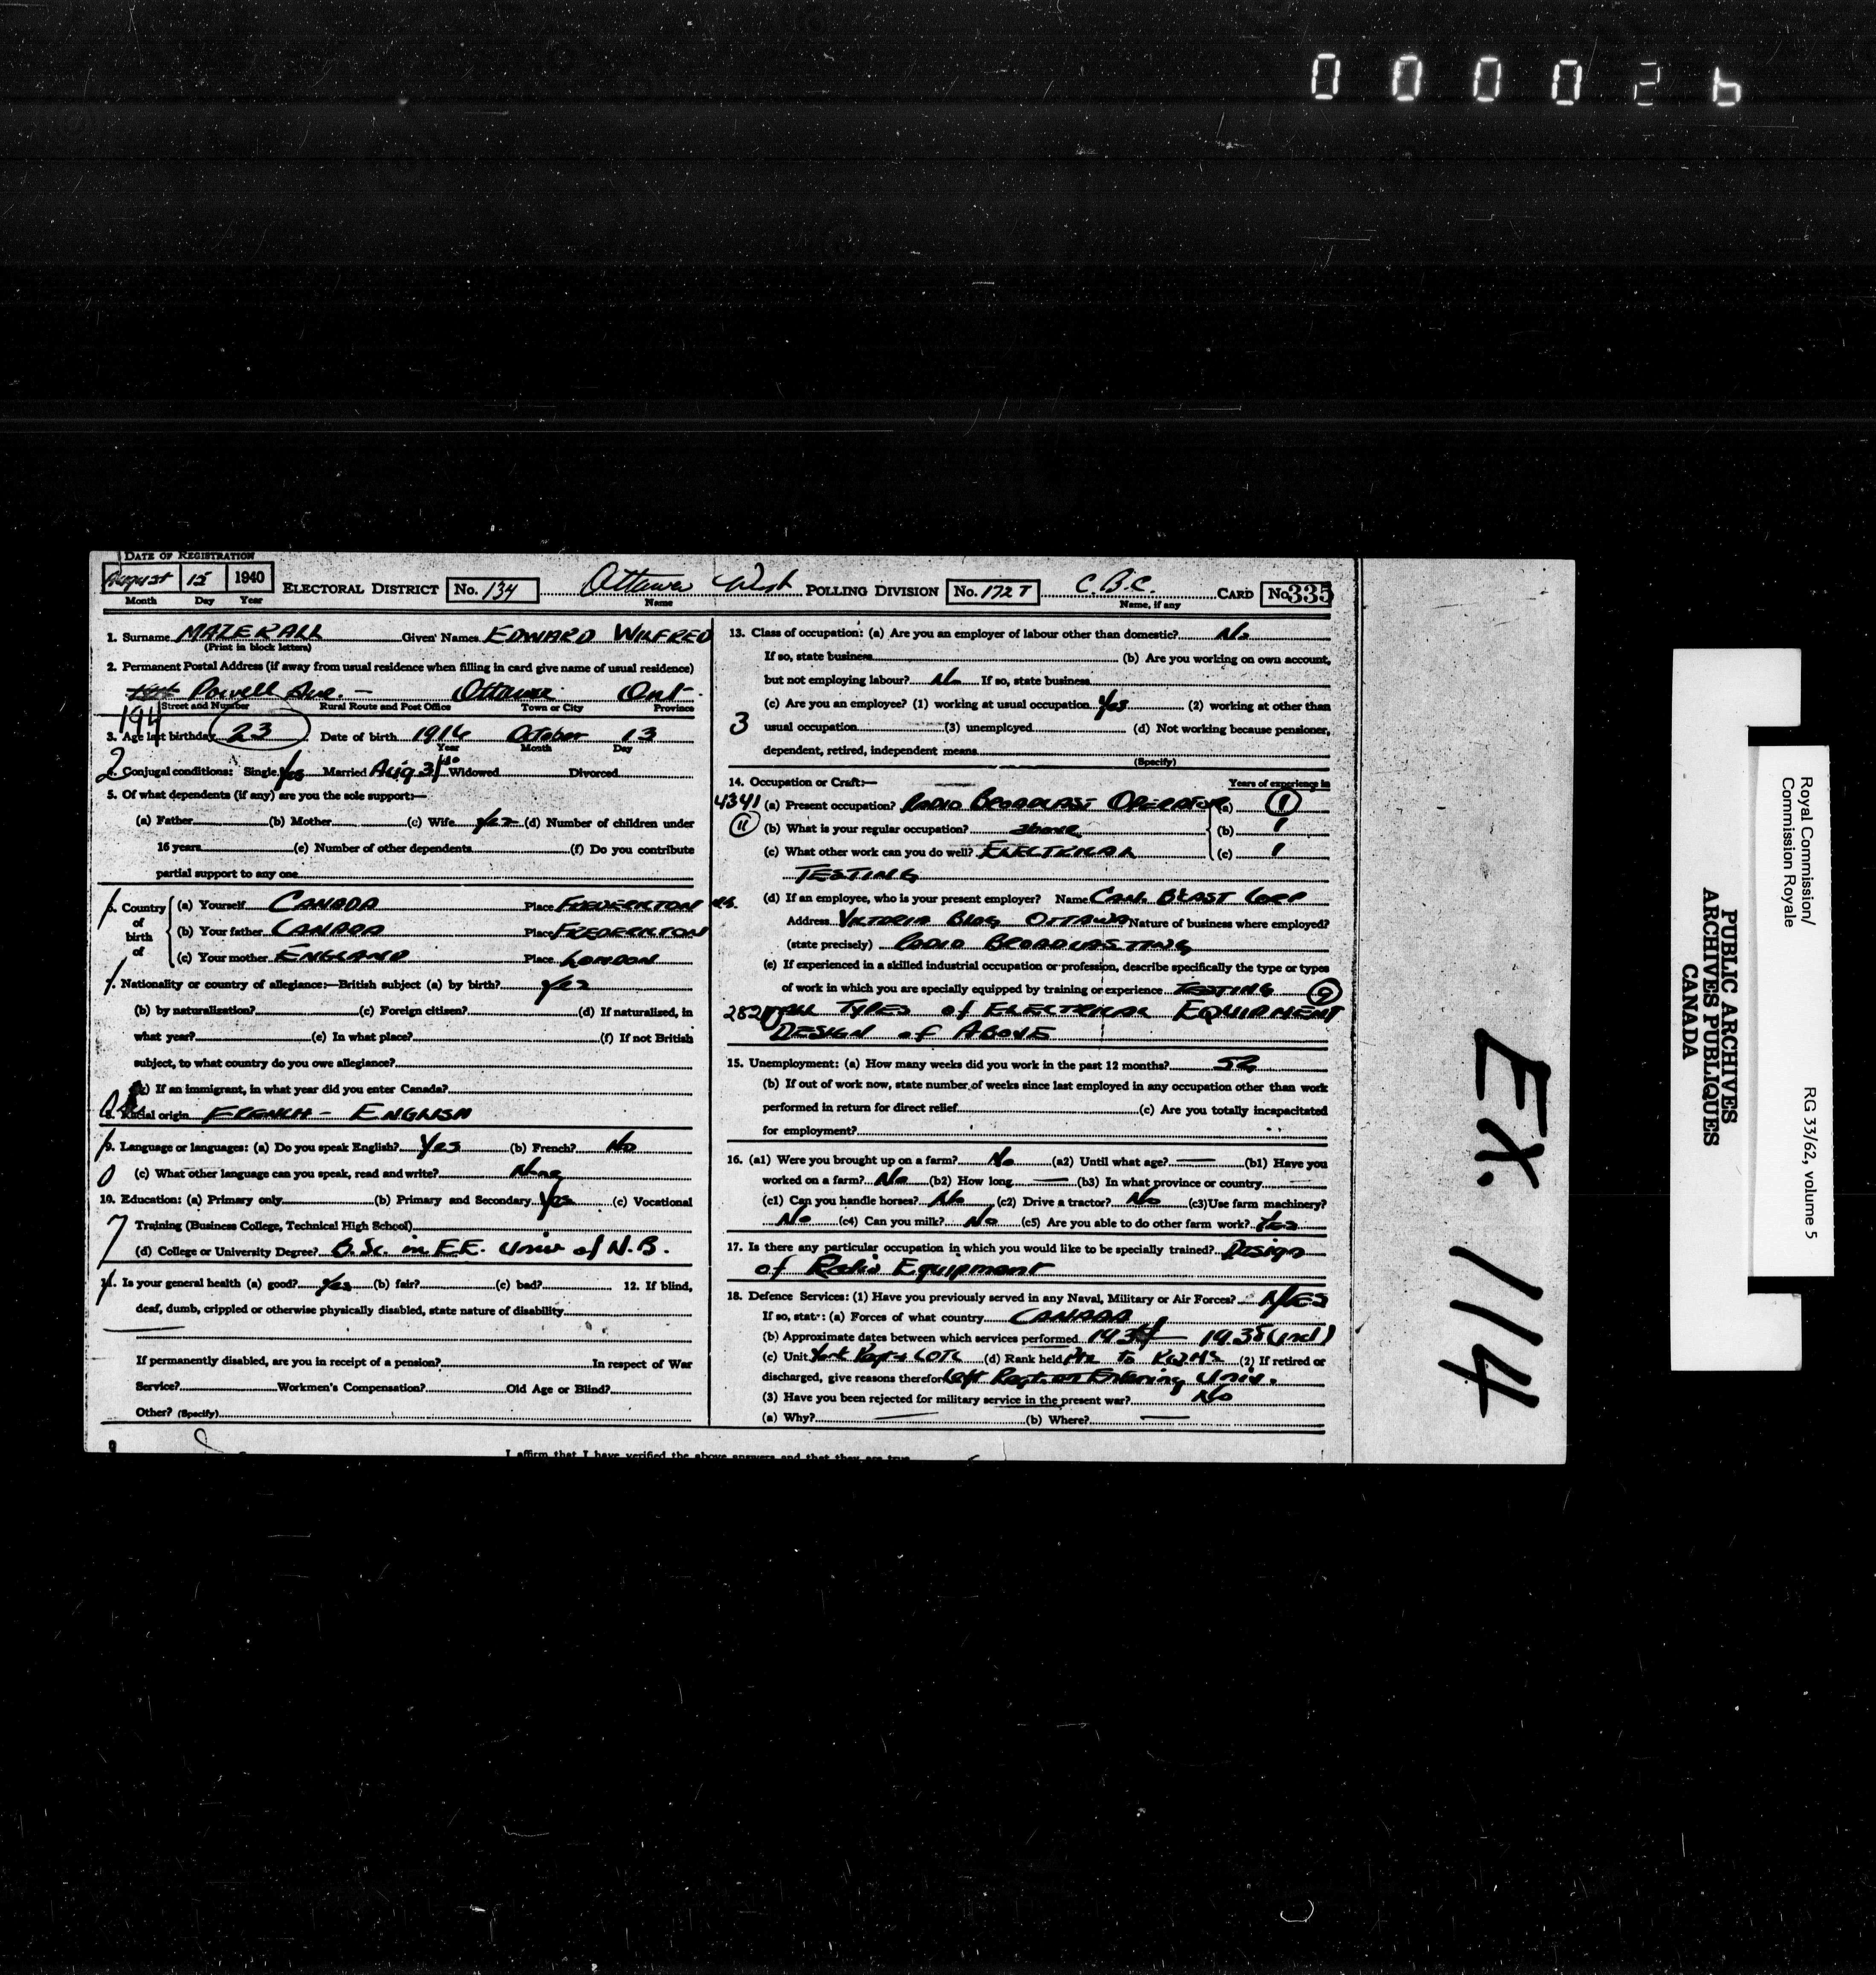 000026
DATE OF REGISTRATION
August 15 1940 ELECTORAL DISTRICT No. 134 Ottawa West POLLING DIVISION No. 172 T C.B.C. CARD No 335
Month Day Year Name Name, if any
1. Surname MAZERALL Given Names EDWARD WILFRED
(Print in block letters)
2. Permanent Postal Address (if away from usual residence when filling in card give name of usual residence)
Powell Ave. - Ottawa Ont.
194 Street and Number Rural Route and Post Office Town or City Province
3. Age last birthday 23 Date of birth 1916 October 13
Year Month Day
2 4. Conjugal conditions: Single Yes Married Aug 31 Widowed Divorced
5. Of what dependents (if any) are you the sole support:—
(a) Father (b) Mother (c) Wife Yes (d) Number of children under
16 years (e) Number of other dependents (f) Do you contribute
partial support to any one
6. Country of birth of (a) Yourself CANADA Place FREDERICTON N.B.
(b) Your father CANADA Place FREDERICTON
(c) Your mother ENGLAND Place LONDON
7. Nationality or country of allegiance:—British subject (a) by birth? Yes
(b) by naturalization? (c) Foreign citizen? (d) If naturalized, in
what year? (e) In what place? (f) If not British
subject, to what country do you owe allegiance?
(g) If an immigrant, in what year did you enter Canada?
8. Racial origin FRENCH - ENGLISH
9. Language or languages: (a) Do you speak English? Yes (b) French? No
0 (c) What other language can you speak, read and write? None
10. Education: (a) Primary only (b) Primary and Secondary Yes (c) Vocational
7 Training (Business College, Technical High School)
(d) College or University Degree? B.Sc. in E.E. Univ of N.B.
11. Is your general health (a) good? Yes (b) fair? (c) bad? 12. If blind,
deaf, dumb, crippled or otherwise physically disabled, state nature of disability
If permanently disabled, are you in receipt of a pension? In respect of War
Service? Workmen's Compensation? Old Age or Blind?
Other? (Specify)
13. Class of occupation: (a) Are you an employer of labour other than domestic? No
If so, state business (b) Are you working on own account,
but not employing labour? No If so, state business
(c) Are you an employee? (1) working at usual occupation Yes (2) working at other than
3 usual occupation (3) unemployed (d) Not working because pensioner,
dependent, retired, independent means
(Specify)
14. Occupation or Craft:— Years of experience in
4341 (a) Present occupation? RADIO BROADCAST OPERATOR (a) 1
11 (b) What is your regular occupation? above (b) 1
(c) What other work can you do well? ELECTRICAL (c) 1
TESTING
(d) If an employee, who is your present employer? Name CAN. B'CAST CORP
Address VICTORIA BLDG OTTAWA Nature of business where employed?
(state precisely) RADIO BROADCASTING
(e) If experienced in a skilled industrial occupation or profession, describe specifically the type or types
of work in which you are specially equipped by training or experience TESTING 9
ALL TYPES of ELECTRICAL EQUIPMENT
DESIGN of ABOVE
15. Unemployment: (a) How many weeks did you work in the past 12 months? 52
(b) If out of work now, state number of weeks since last employed in any occupation other than work
performed in return for direct relief (c) Are you totally incapacitated
for employment?
16. (a1) Were you brought up on a farm? No (a2) Until what age? — (b1) Have you
worked on a farm? No (b2) How long — (b3) In what province or country —
(c1) Can you handle horses? No (c2) Drive a tractor? No (c3) Use farm machinery?
No (c4) Can you milk? No (c5) Are you able to do other farm work? Yes
17. Is there any particular occupation in which you would like to be specially trained? Design
of Radio Equipment
18. Defence Services: (1) Have you previously served in any Naval, Military or Air Forces? YES
If so, state: (a) Forces of what country CANADA
(b) Approximate dates between which services performed 1934 - 1935 (incl)
(c) Unit York Regt & COTC (d) Rank held Pte to (2) If retired or
discharged, give reasons therefor Left Regt. on Entering Univ.
(3) Have you been rejected for military service in the present war? No
(a) Why? — (b) Where? —
I affirm that I have verified the above answers and that they are true
Ex. 114
PUBLIC ARCHIVES
ARCHIVES PUBLIQUES
CANADA
Royal Commission/
Commission Royale
RG 33/62, volume 5